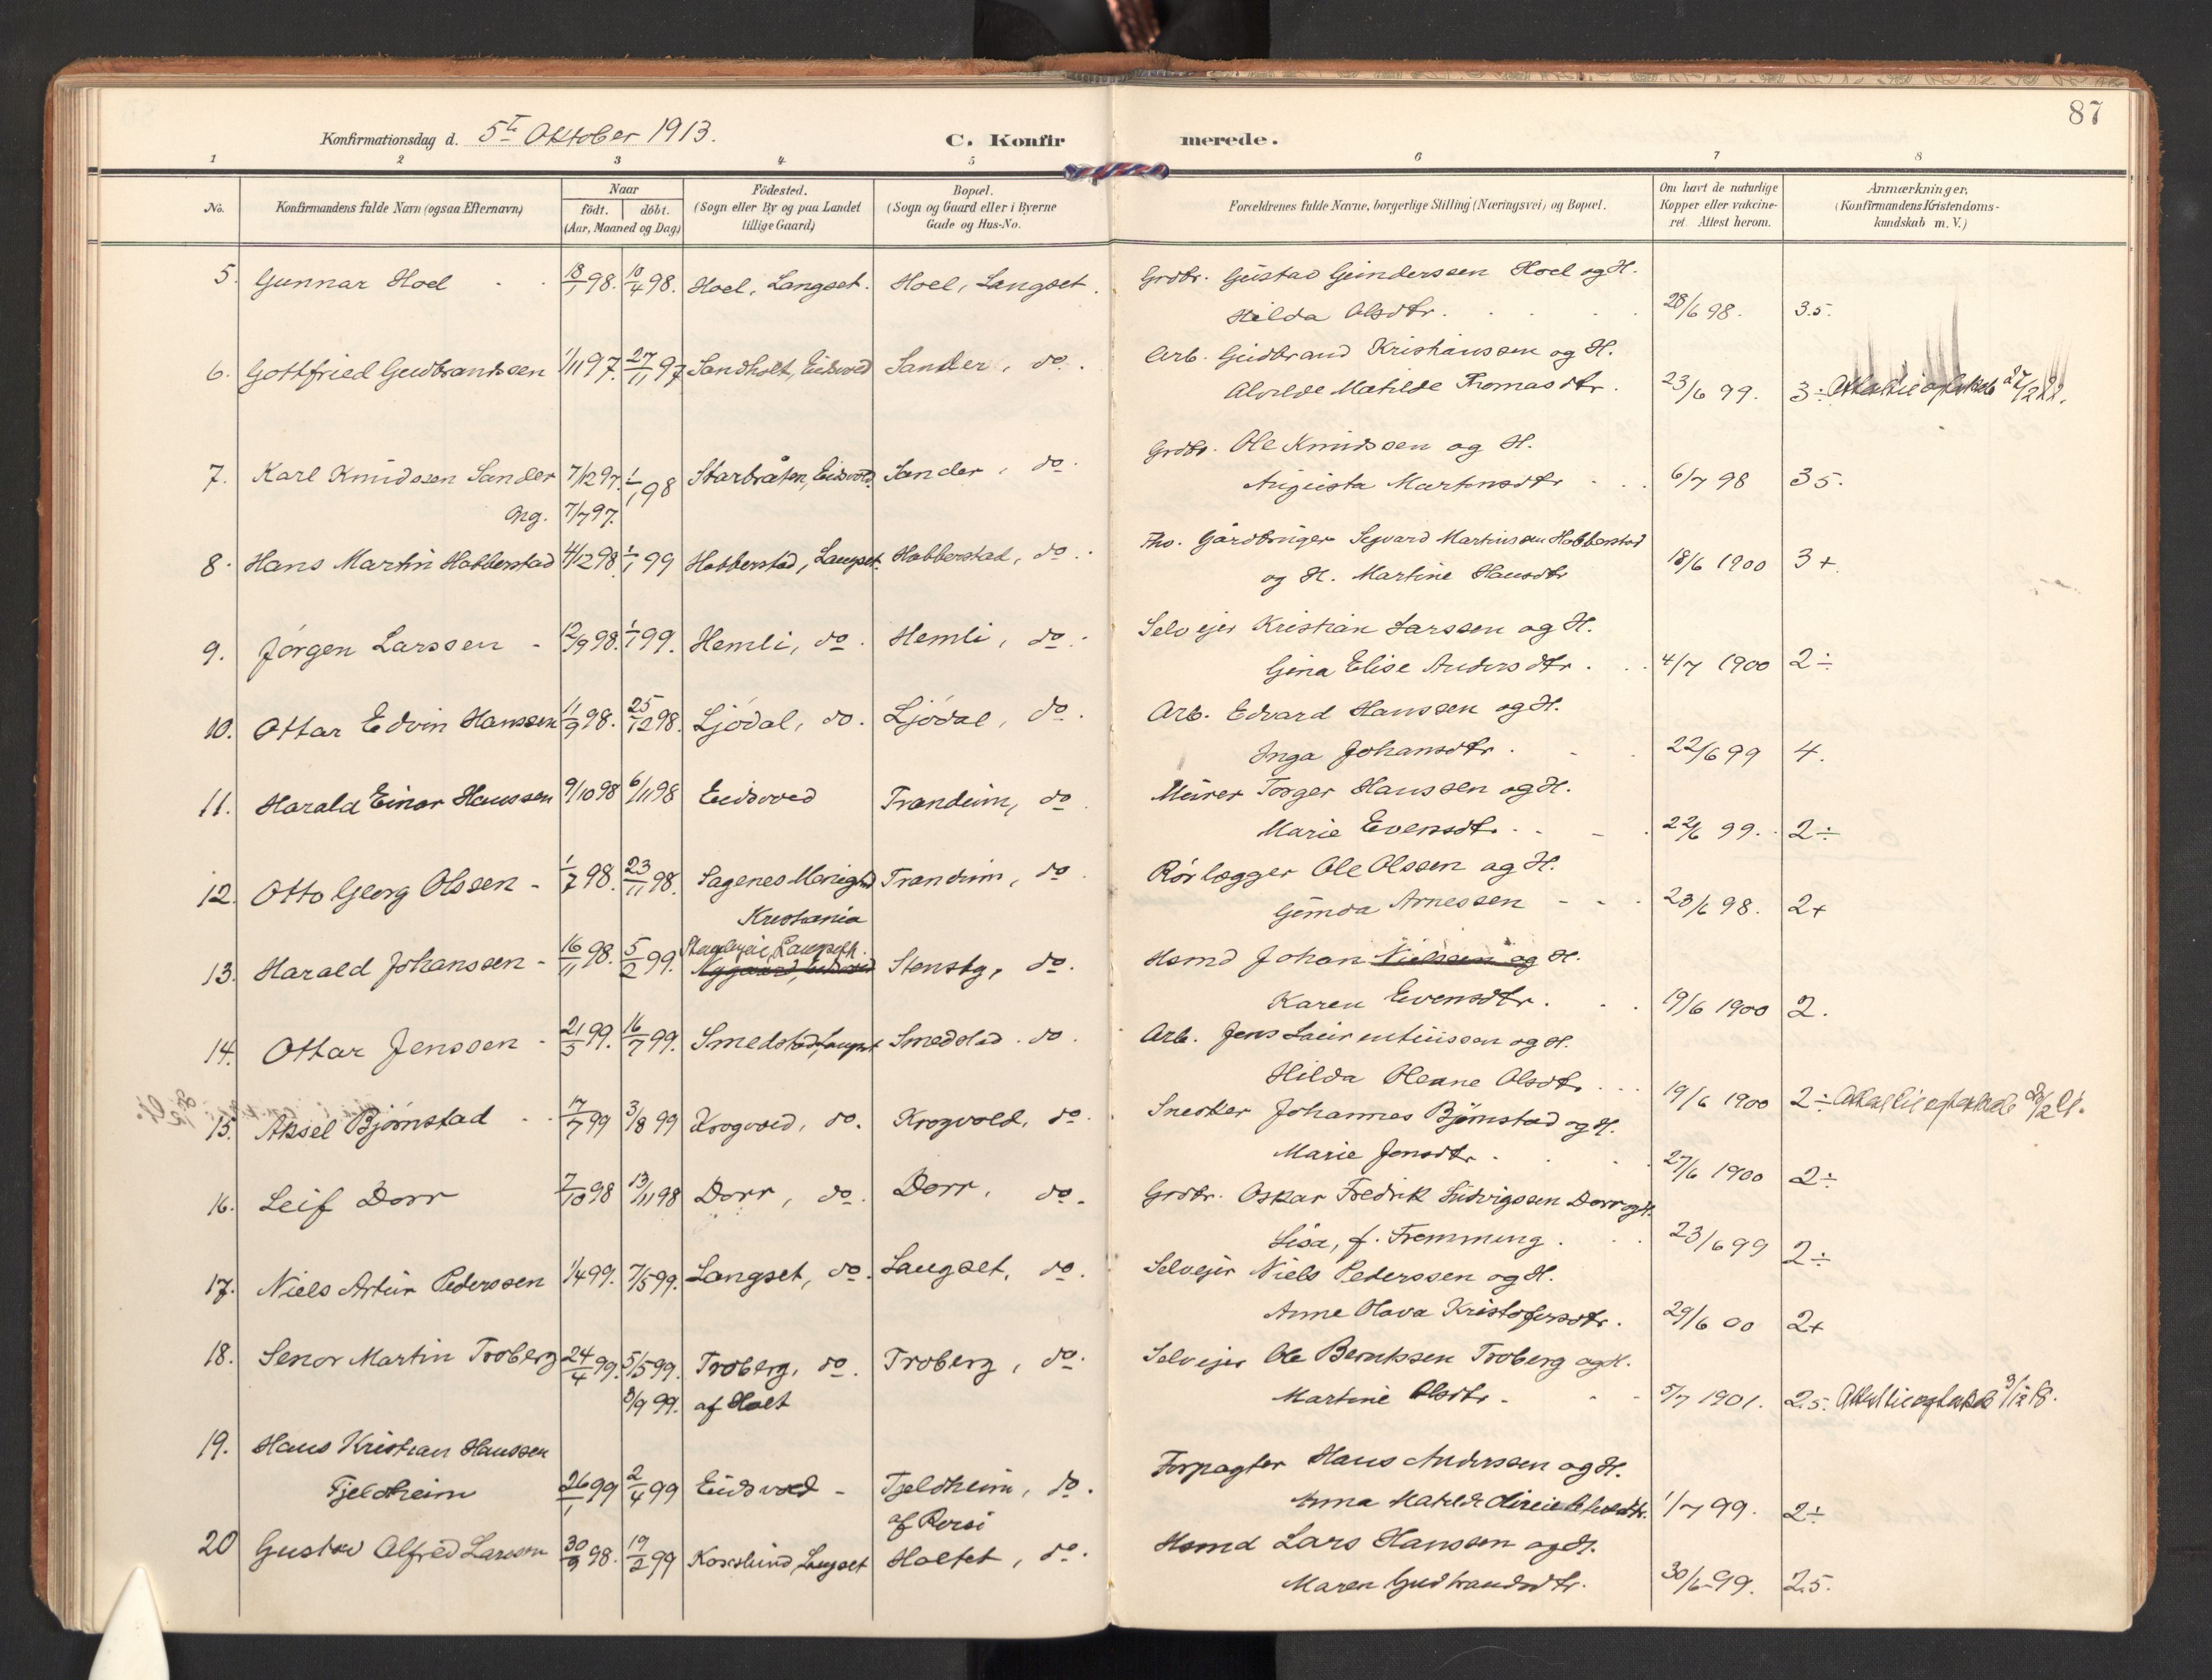 87
Konfirmationsdag d. 5te Oktober 1913. C. Konfirmerede.
1 2 3 4 5 6 7 8
No.
Konfirmandens fulde Navn (ogsaa Efternavn)
Naar
födt. döbt.
(Aar, Maaned og Dag)
Födested.
(Sogn eller By og paa Landet
tillige Gaard)
Bopæl.
(Sogn og Gaard eller i Byerne
Gade og Hus-No.
Forældrenes fulde Navne, borgerlige Stilling (Næringsvei) og Bopæl.
Om havt de naturlige
Kopper eller vakcine-
ret. Attest herom.
Anmærkninger.
(Konfirmandens Kristendoms-
kundskab m. V.)
5. Gunnar Hoel 18/1 98. 10/4 98. Hoel, Langset. Hoel, Langset. Grdbr. Gustav Gunderssen Hoel og H.
Hilda Olsdtr. 28/6 98. 3.5.
6. Gottfried Gudbrandssen 1/11 97. 27/11 97 Sandholt, Eidsvold Sander, do. Arb. Gudbrand Kristianssen og H.
Alvilde Matilde Thomasdtr. 23/6 99. 3÷ 27/2 22.
7. Karl Knudssen Sander 7/12 97. 1/1 98 Starbråten, Eidsvold. Sander, do. Grdbr. Ole Knudssen og H.
Ang. 7/7 97. Augusta Martinsdtr 6/7 98 3.5.
8. Hans Martin Habberstad 4/12 98. 1/1 99 Habberstad, Langset. Habberstad, do. Fhv. Gårdbruger Sigvard Martinssen Habberstad
og H. Martine Hansdtr 18/6 1900 3+
9. Jörgen Larssen 12/9 98. 1/1 99. Hemli, do. Hemli, do. Selvejer Kristian Larssen og H.
Gina Elise Andersdtr. 4/7 1900 2÷
10. Ottar Edvin Hanssen 11/9 98. 25/12 98. Ljödal, do. Ljödal, do. Arb. Edvard Hanssen og H.
Inga Johansdtr. 22/6 99 4.
11. Harald Einar Hanssen 9/10 98 6/11 98 Eidsvold Trandum, do Murer Torger Hanssen og H.
Marie Evensdtr. 22/6 99. 2÷
12. Otto Georg Olssen 1/7 98. 23/11 98. Sagenes Menighd Trandum, do Rörlægger Ole Olssen og H.
Kristiania Gunda Arnessen 23/6 98. 2+
13. Harald Johanssen 16/11 98. 5/2 99. Langseth. Nygaard, Eidsvold Stensby, do. Hsmd Johan Nielssen og H.
Karen Evensdtr. 19/6 1900 2.
14. Ottar Jenssen 21/5 99. 16/7 99. Smedstad, Langset Smedstad. do. Arb. Jens Laurentiussen og H.
Hilda Oleane Olsdtr. 19/6 1900 2÷
15. Aksel Björnstad 17/7 99 3/8 99 Krogvold, do. Krogvold, do. Snedker Johannes Björnstad og H.
Marie Jensdtr. 27/6 1900 2÷
16. Leif Dorr 7/10 98 13/11 98 Dorr, do. Dorr, do. Grdbr. Oskar Fredrik Ludvigssen Dorr og H.
Lisa, f. Fremming. 23/6 99 2÷
17. Niels Artur Pederssen 1/4 99. 7/5 99. Langset, do. Langset, do. Selvejer Niels Pederssen og H.
Anne Olava Kristofersdtr. 29/6 00 2+
18. Senor Martin Troberg 24/4 99. 5/5 99. Troberg, do. Troberg, do. Selvejer Ole Berntssen Troberg og H.
3/9 99. af Holt Martine Olsdtr. 5/7 1901. 2.5. 3/12 18.
19. Hans Kristian Hanssen Forpagter Hans Anderssen og H.
Fjeldheim 26/1 99 2/4 99 Eidsvold Fjeldheim, do. Anna Matilde 1/7 99. 2÷
af Rersi
20 Gustav Alfred Larssen 30/9 98. 19/2 99 Korslund, Langset Holtet, do. Hsmd Lars Hanssen og H.
Maren Gudbrandsdtr. 30/6 99. 2.5.